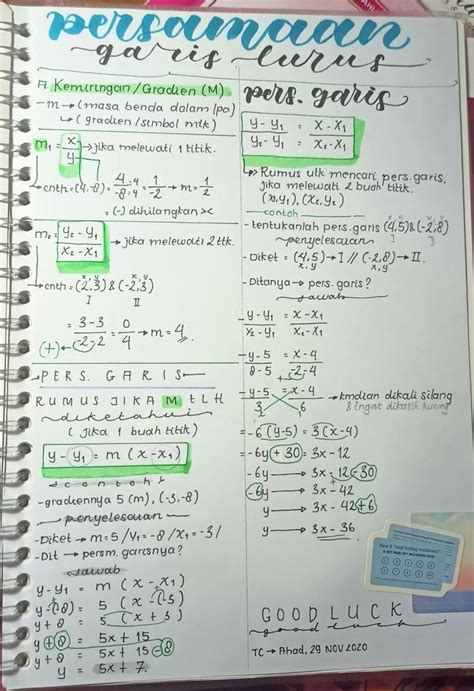 persamaan
garis lurus
A Kemiringan/Gradien (M)
- m → (masa benda dalam ipa)
↳ (gradien/simbol mtk)
m₁ = x/y → jika melewati 1 titik.
→ cnth = (4,-8) = 4:4/-8:4 = 1/-2 → m = 1/2
= (-) dihilangkan ><
m₂ = y₂ - y₁ / x₂ - x₁ → jika melewati 2 ttk.
x, y x, y
→ cnth = (2,3) & (-2,3)
I II
= 3-3/-2-2 = 0/4 → m = 4
(+) ←
PERS. GARIS
RUMUS JIKA M TLH
diketahui
(jika 1 buah titik)
y - y₁ = m (x - x₁)
contoh
- gradiennya 5 (m), (-3,-8)
penyelesaian
- Diket → m = 5 / y₁ = -8 / x₁ = -3 /
- Dit → persm. garisnya?
Jawab
y - y₁ = m (x - x₁)
y - (-8) = 5 (x - (-3)
y + 8 = 5 (x + 3)
y + 8 = 5x + 15
y + 8 = 5x + 15 - 8
y = 5x + 7.
pers. garis
y - y₁ / y₂ - y₁ = x - x₁ / x₂ - x₁
↳ Rumus utk mencari pers. garis,
jika melewati 2 buah titik.
(x₁, y₁), (x₂, y₂)
contoh
x, y x, y
- tentukanlah pers. garis (4,5) & (-2,8)
I II
penyelesaian
- Diket = (4,5) → I // (-2,8) → II.
x, y x, y
- Ditanya → pers. garis?
Jawab
- y - y₁ / y₂ - y₁ = x - x₁ / x₂ - x₁
- y - 5 / 8 - 5 = x - 4 / -2 - 4
- y - 5 / 3 = x - 4 / 6 → kmdian dikali silang
& ingat dikasih kurung
= -6 (y-5) = 3 (x-4)
= -6y + 30 = 3x - 12
-6y → 3x - 12 - 30
-6y → 3x - 42
y → 3x - 42 + 6
y → 3x - 36
GOOD LUCK
good luck
TC → Ahad, 29 NOV 2020